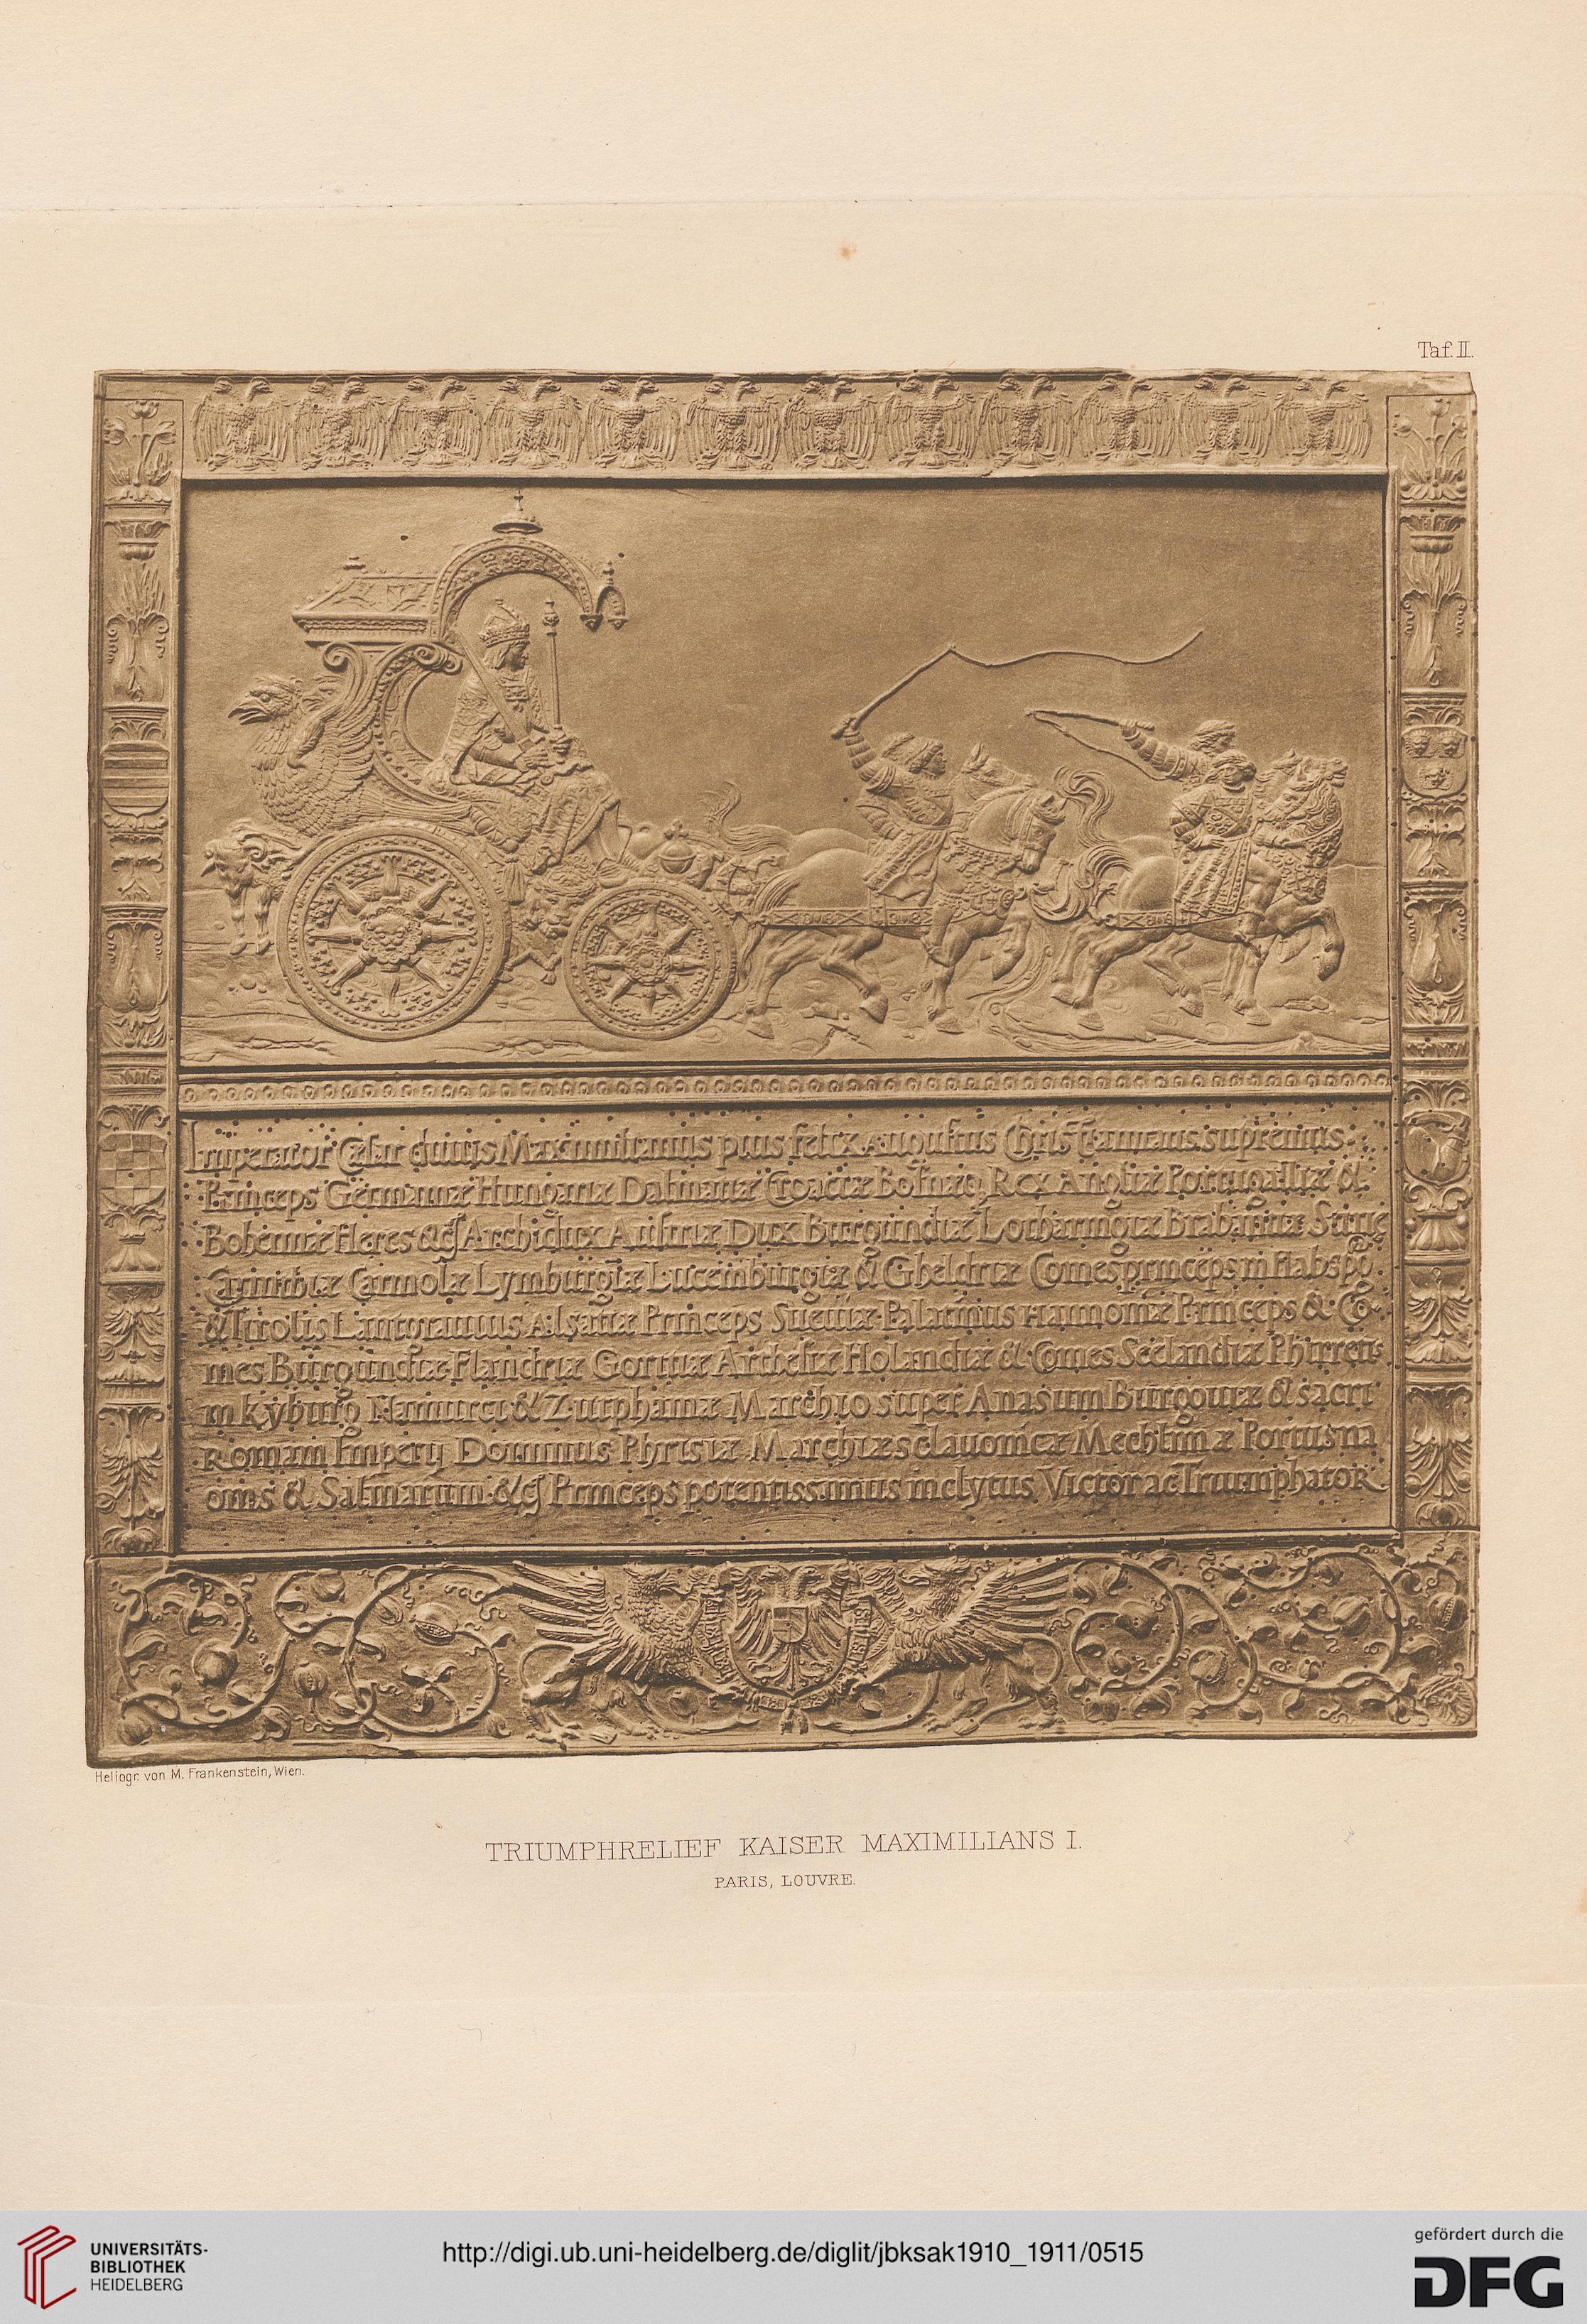 Taf. II.
Imperator Cæsar diuus Maximilianus pius felix Augustus Christianitatis supremus
Princeps Germaniæ Hungariæ Dalmatiæ Croaciæ Bosnæq Rex Angliæ Portugalliæ &
Bohemiæ Heres &c Archidux Austriæ Dux Burgundiæ Lotharingiæ Brabantiæ Stirie
Carinthiæ Carniolæ Lymburgiæ Lucemburgiæ & Gheldriæ Comes princeps in Habspg
& Tirolis Lantgrauius Alsatiæ Princeps Sueuiæ Palatinus Hannoniæ Princeps & Co
mes Burgundiæ Flandriæ Goritiæ Arthesiæ Holandiæ & Comes Seelandiæ Phirretis
in Kyburg Namurci & Zutphaniæ Marchio super Anasum Burgouiæ & sacri
Romani Imperij Dominus Phrisiæ Marchiæ sclauonicæ Mechliniæ Portusna
onis & Salinarum &c Princeps potentissimus inclytus Victor ac Triumphator
Heliogr. von M. Frankenstein, Wien.
TRIUMPHRELIEF KAISER MAXIMILIANS I.
PARIS, LOUVRE.
UNIVERSITÄTS-
BIBLIOTHEK
HEIDELBERG
http://digi.ub.uni-heidelberg.de/diglit/jbksak1910_1911/0515
gefördert durch die
DFG